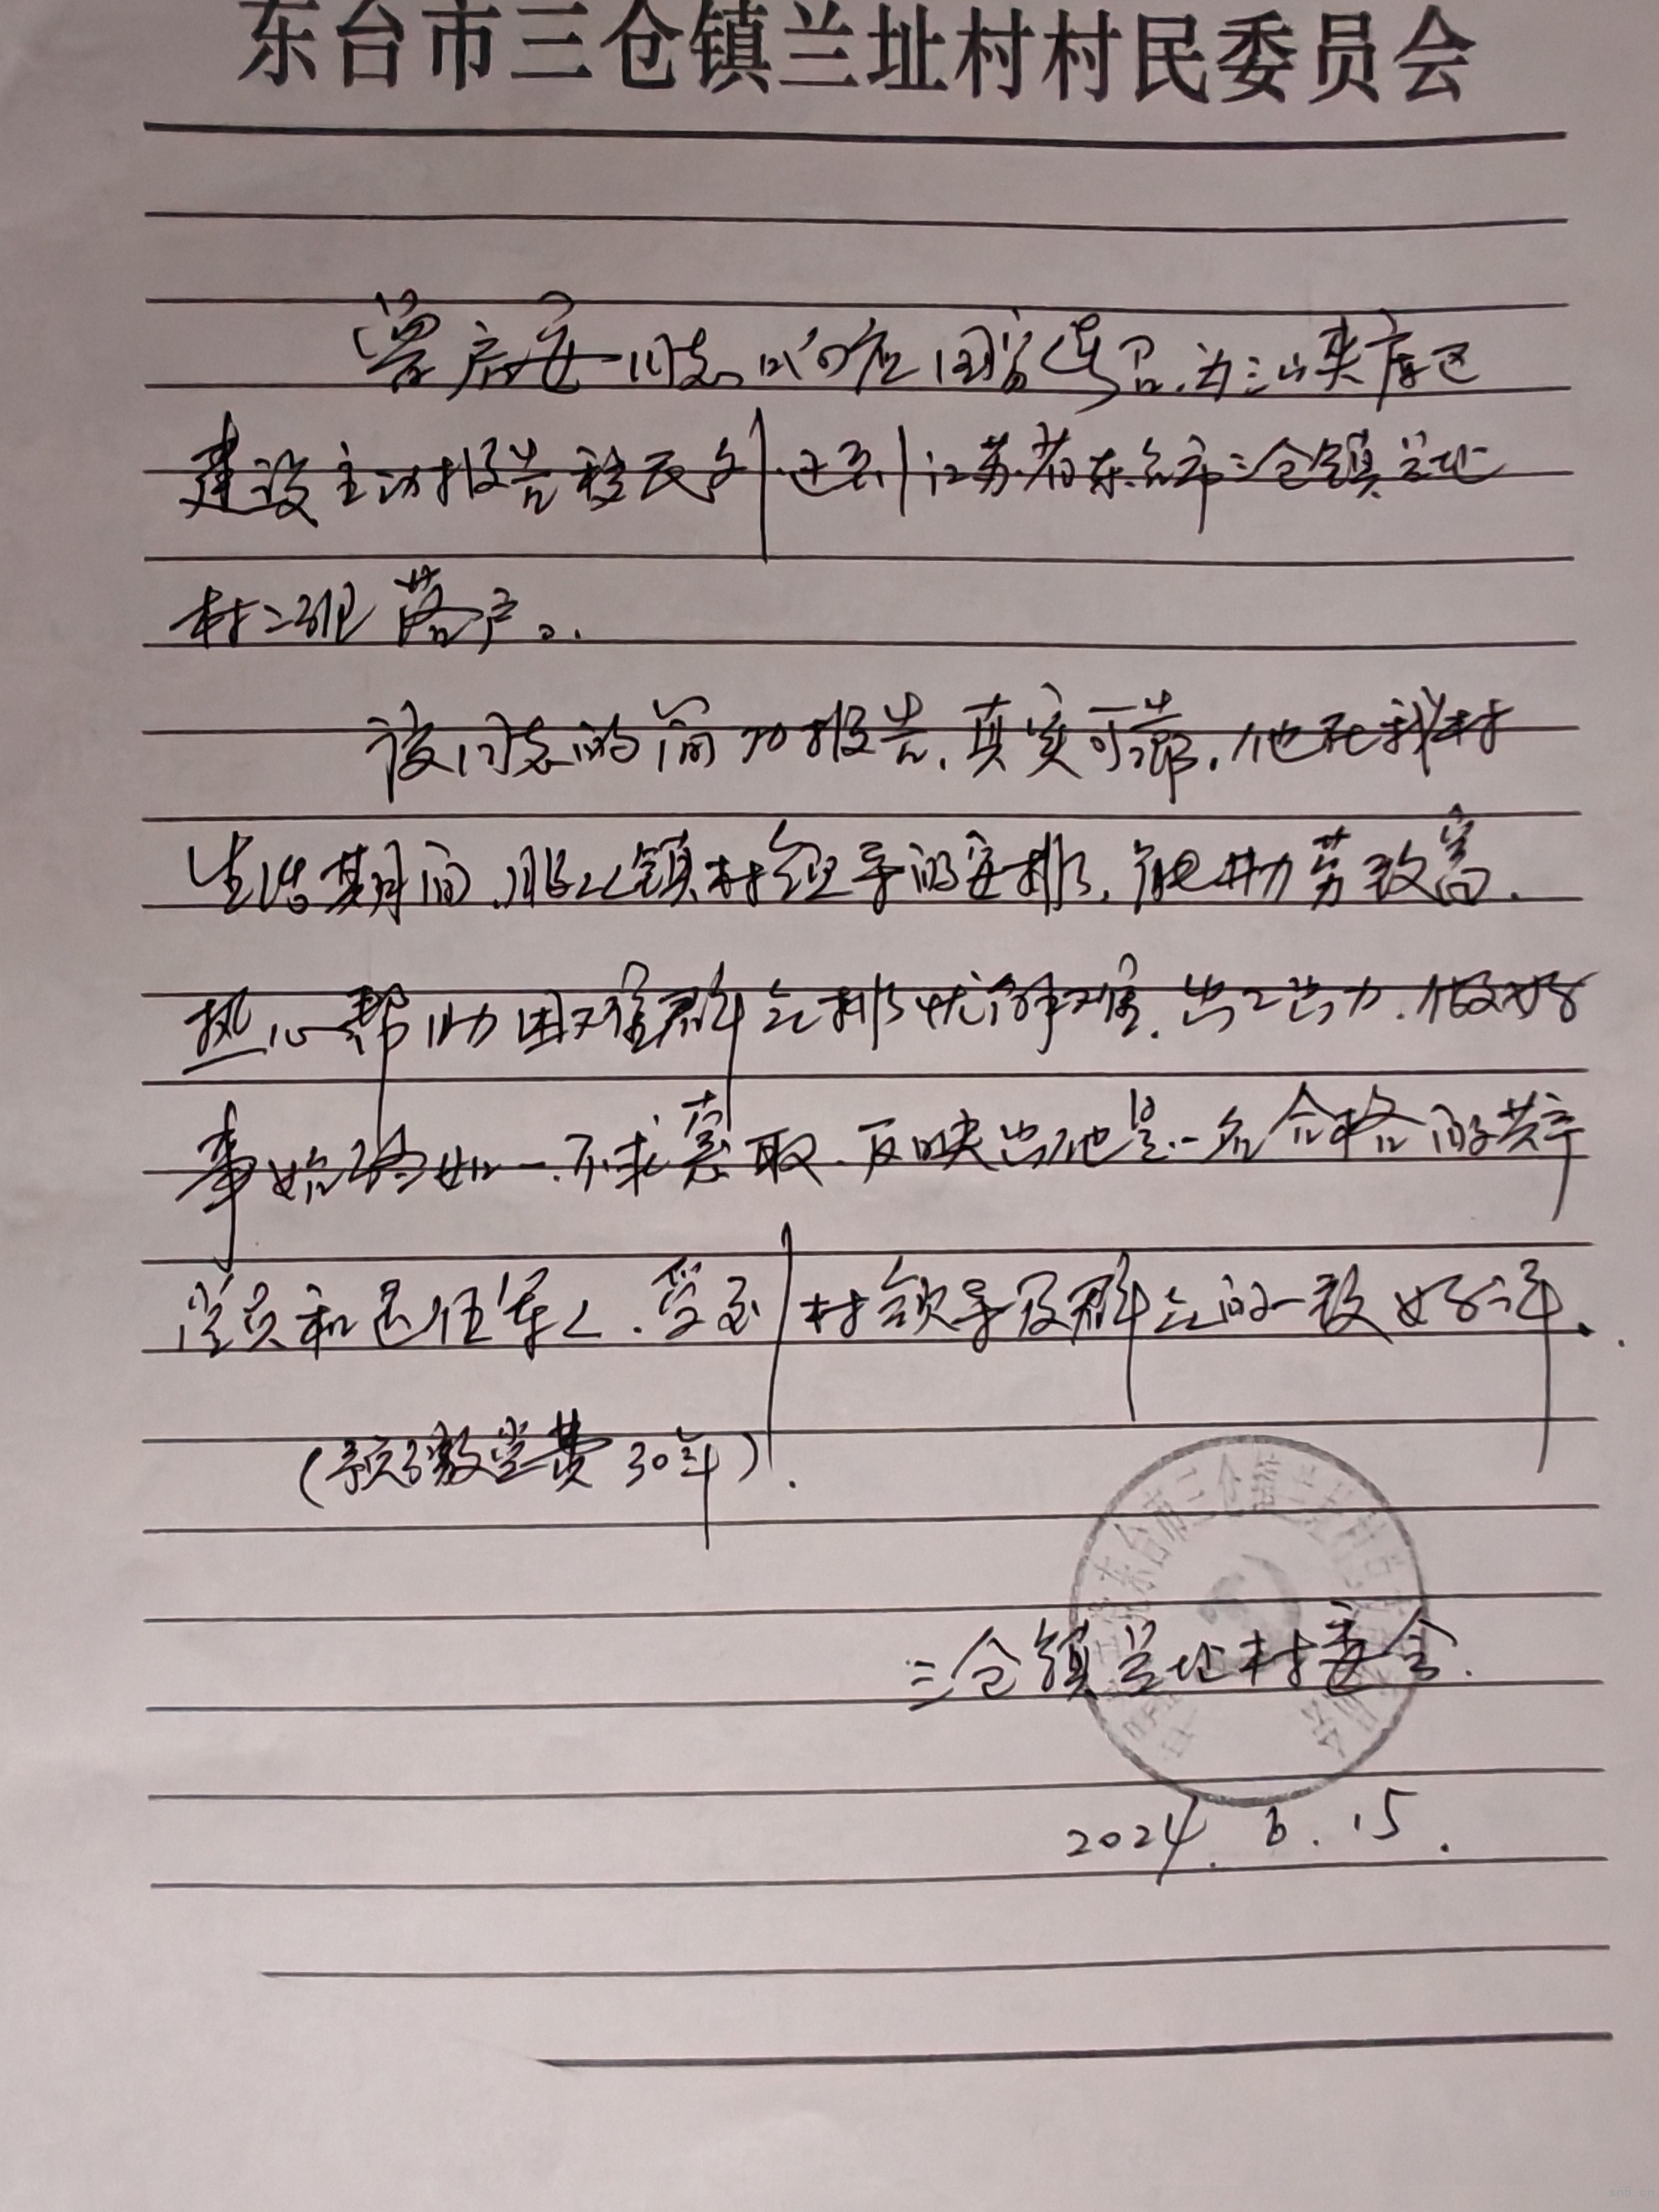 东台市三仓镇兰址村村民委员会
同志响应国家号召.为三峡库区
建设主动报告移民外迁到江苏省东台市三仓镇兰址
村二组落户。
该同志的前述报告,真实可靠,他在我村
生活期间,服从镇村领导的安排,能勤劳致富.
热心帮助困难群众排忧解难.出工出力.做好
事始终如一.不求索取.反映出他是一名合格的共产
党员和退伍军人.受到村领导及群众的一致好评.
(预缴党费30年).
三仓镇兰址村委会.
2024.6.15.
东台市三仓镇兰址村